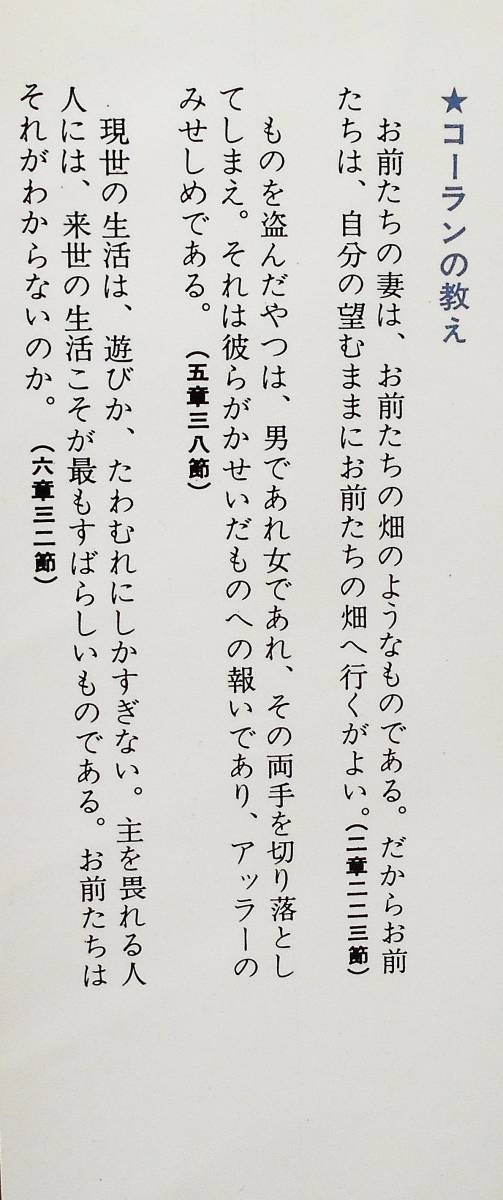 ★コーランの教え
お前たちの妻は、お前たちの畑のようなものである。だからお前
たちは、自分の望むままにお前たちの畑へ行くがよい。(二章二二三節)
ものを盗んだやつは、男であれ女であれ、その両手を切り落とし
てしまえ。それは彼らがかせいだものへの報いであり、アッラーの
みせしめである。(五章三八節)
現世の生活は、遊びか、たわむれにしかすぎない。主を畏れる人
人には、来世の生活こそが最もすばらしいものである。お前たちは
それがわからないのか。(六章三二節)